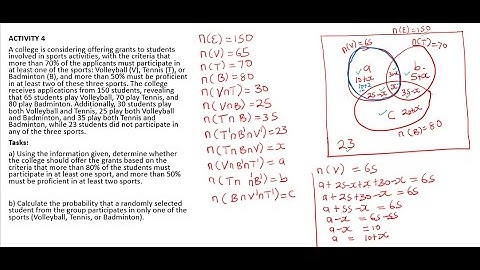 ACTIVITY 4
A college is considering offering grants to students
involved in sports activities, with the criteria that
more than 70% of the applicants must participate in
at least one of the sports: Volleyball (V), Tennis (T), or
Badminton (B), and more than 50% must be proficient
in at least two of these three sports. The college
receives applications from 150 students, revealing
that 65 students play Volleyball, 70 play Tennis, and
80 play Badminton. Additionally, 30 students play
both Volleyball and Tennis, 25 play both Volleyball
and Badminton, and 35 play both Tennis and
Badminton, while 23 students did not participate in
any of the three sports.
Tasks:
a) Using the information given, determine whether
the college should offer the grants based on the
criteria that more than 80% of the students must
participate in at least one sport, and more than 50%
must be proficient in at least two sports.
b) Calculate the probability that a randomly selected
student from the group participates in only one of
the sports (Volleyball, Tennis, or Badminton).
n(E)=150
n(V)=65
n(T)=70
n(B)=80
n(V∩T)=30
n(V∩B)=25
n(T∩B)=35
n(T'∩B'∩V')=23
n(T∩B∩V)=x
n(V∩B'∩T')=a
n(T∩ ∩B')=b
n(B∩V'∩T')=C
n(E)=150
n(V)=65
n(T)=70
a
10+x
30-x
b
5+x
x
25-x
35-x
C
20+x
23
n(B)=80
n(V) = 65
a+25-x+x+30-x=65
a+25+30-x=65
a+55-x=65
a-x=65-55
a-x=10
a=10+x